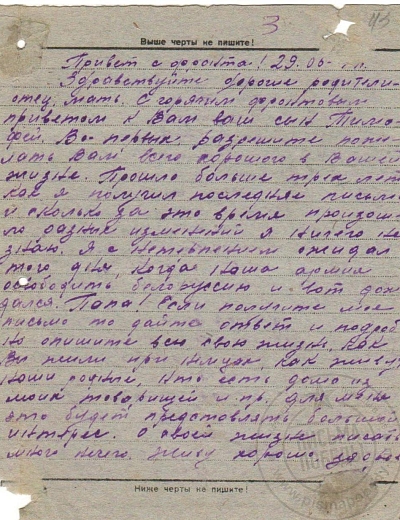 3
Выше черты не пишите!
Привет с фронта! 29.06
Здравствуйте дорогие родители
отец, мать. С горячим фронтовым
приветом к Вам ваш сын Тимо-
фей. Во-первых, разрешите поже-
лать Вам всего хорошого в Вашей
жизне. Прошло больше трех лет
как я получил последнее письмо
и сколько за это время произош-
ло разных изменений я ничего не
знаю. Я с нетерпением ожидал
того дня, когда наша армия
освободить белоруссию и вот дож
дался. Папа! Если получите мое
письмо то дайте ответ и подроб
но опишите всю свою жизнь. Как
Вы жили при немцах, как живут
наши родные, кто есть дома из
моих товарищей и пр. для меня
это будет представлять большой
интерес. О своей жизне писать
много нечего. Живу хорошо,
Ниже черты не пишите!